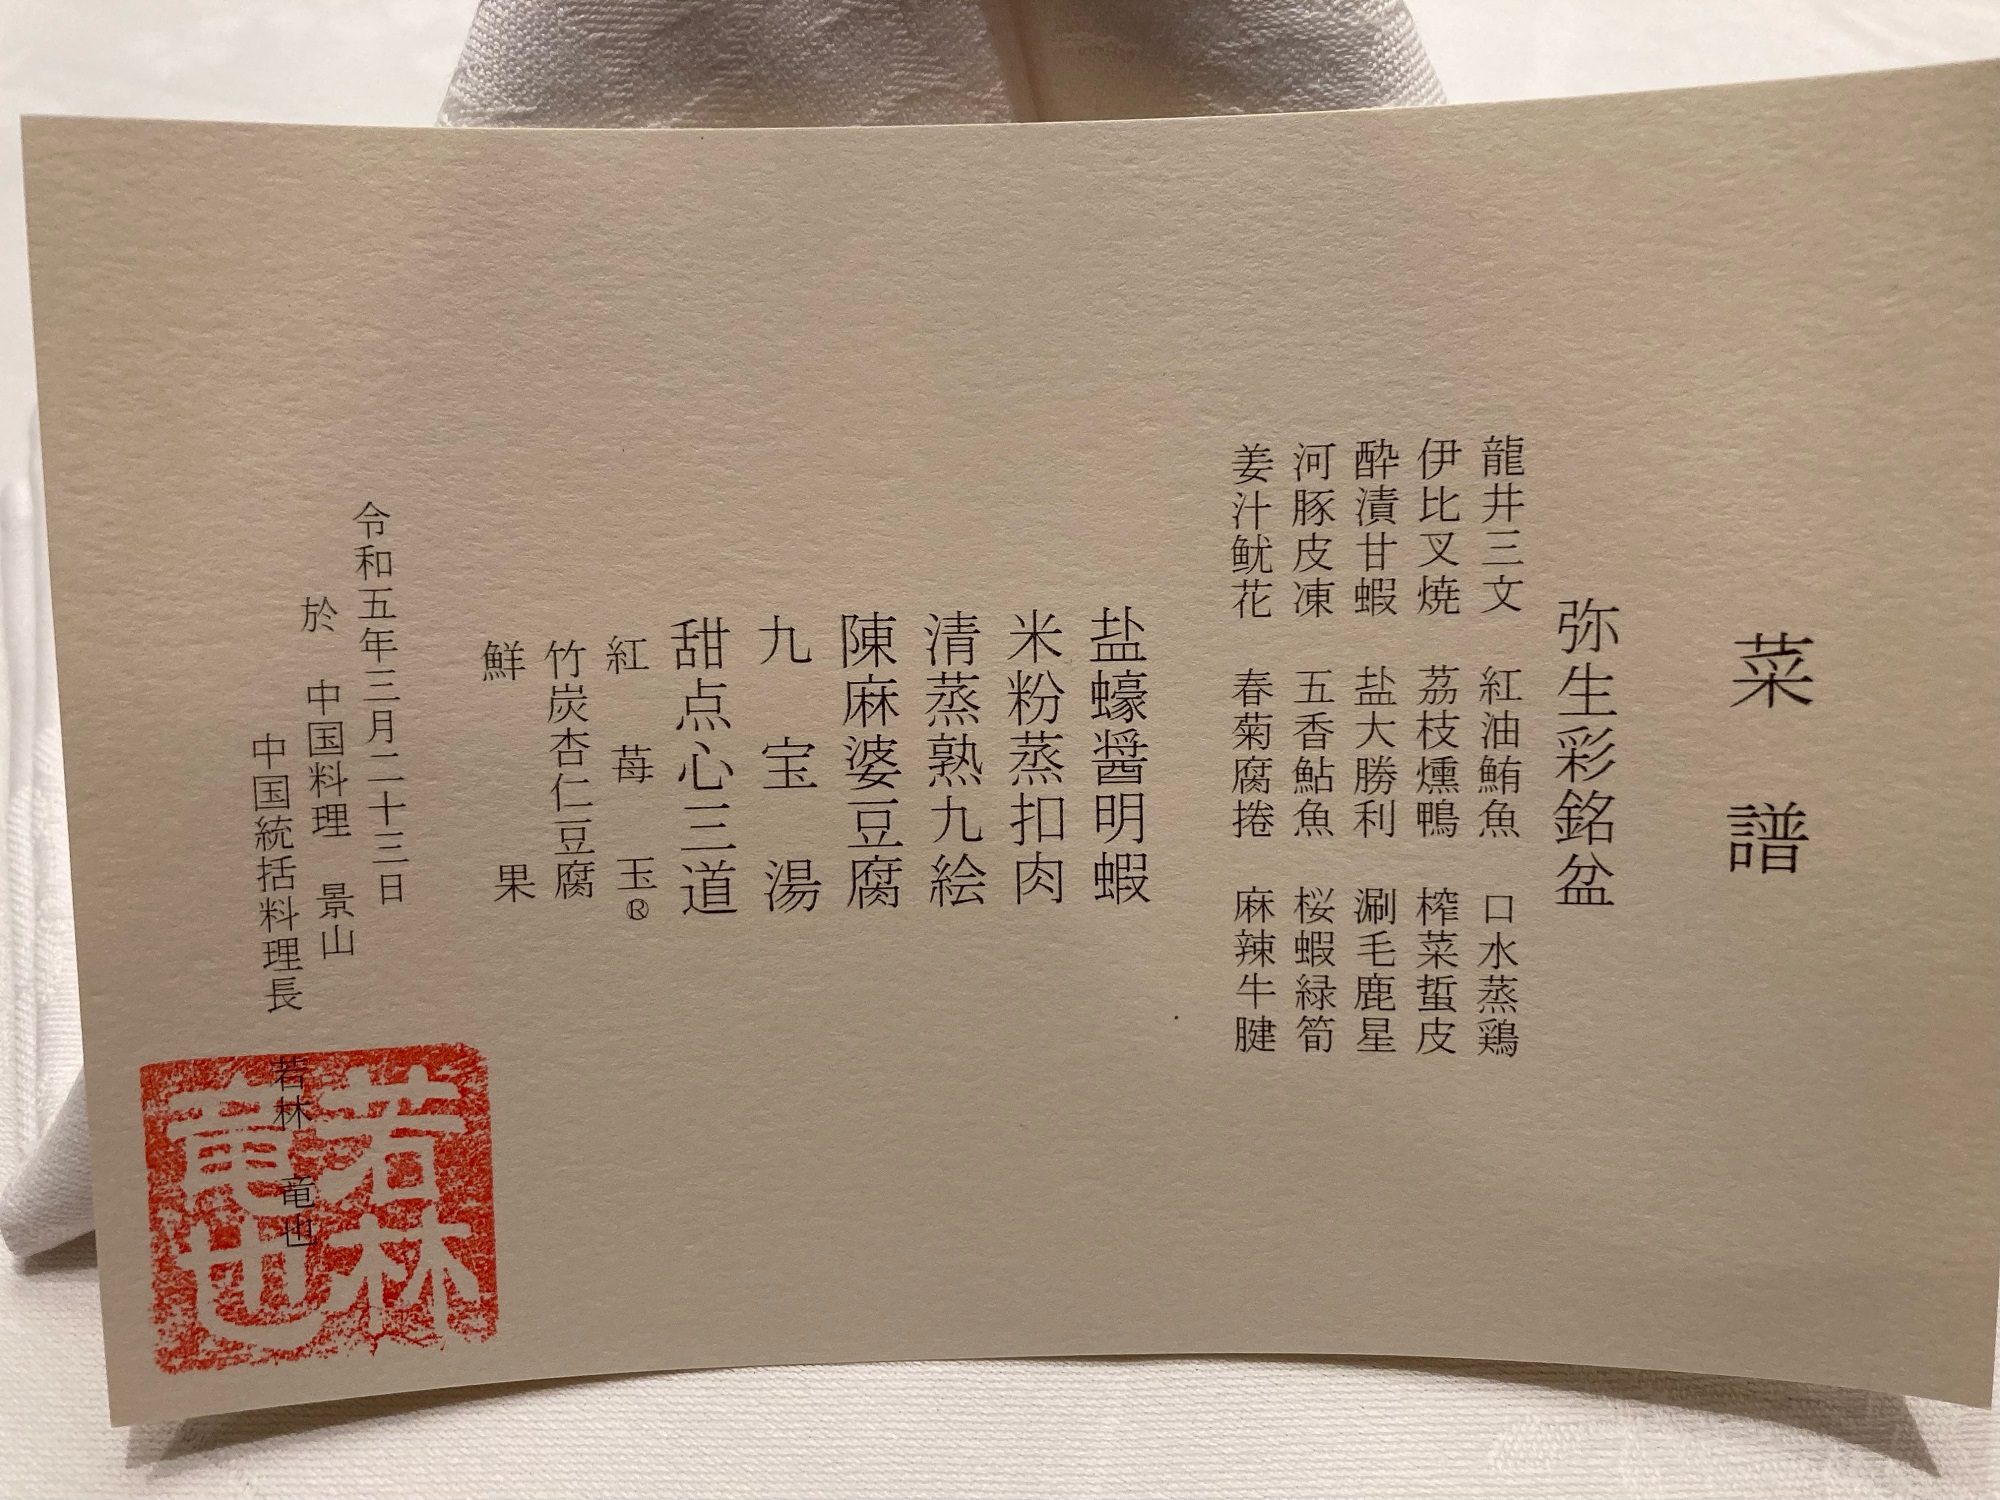 菜譜
弥生彩銘盆
龍井三文 紅油鮪魚 口水蒸鶏
伊比叉焼 茘枝燻鴨 榨菜蜇皮
酔漬甘蝦 盐大勝利 涮毛鹿星
河豚皮凍 五香鮎魚 桜蝦緑筍
姜汁鱿花 春菊腐捲 麻辣牛腱
盐蠔醤明蝦
米粉蒸扣肉
清蒸熟九絵
陳麻婆豆腐
九宝湯
甜点心三道
紅苺玉®
竹炭杏仁豆腐
鮮果
令和五年三月二十三日
於 中国料理 景山
中国統括料理長 若林 竜也
若林
竜也